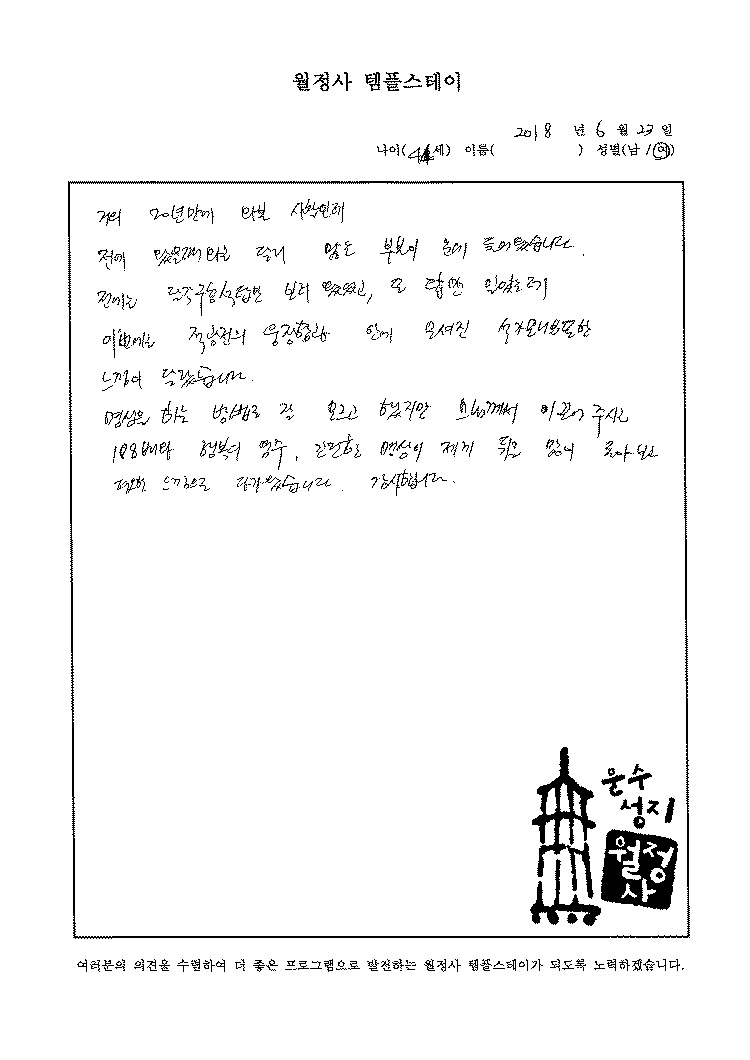 월정사 템플스테이
2018 년 6 월 23 일
나이(44세) 이름( ) 성별(남/여)
거의 20년만에 와본 사찰인데
전에 왔을때와는 달리 많은 부분이 눈에 들어왔습니다.
전에는 팔각구층석탑만 보러 왔었고,
이번에는 적광전의 웅장함과 안에 모셔진 석가모니불또한
느낌이 달랐습니다.
명상을 하는 방법도 잘 모르고 했지만 스님께서 이끌어 주시는
108배와 행복더 명수, 간단한 명상이 제게 뒤를 많이 돌아보는
편안한 느낌으로 다가왔습니다. 감사합니다.
문수
성지
월정
사
여러분의 의견을 수렴하여 더 좋은 프로그램으로 발전하는 월정사 템플스테이가 되도록 노력하겠습니다.